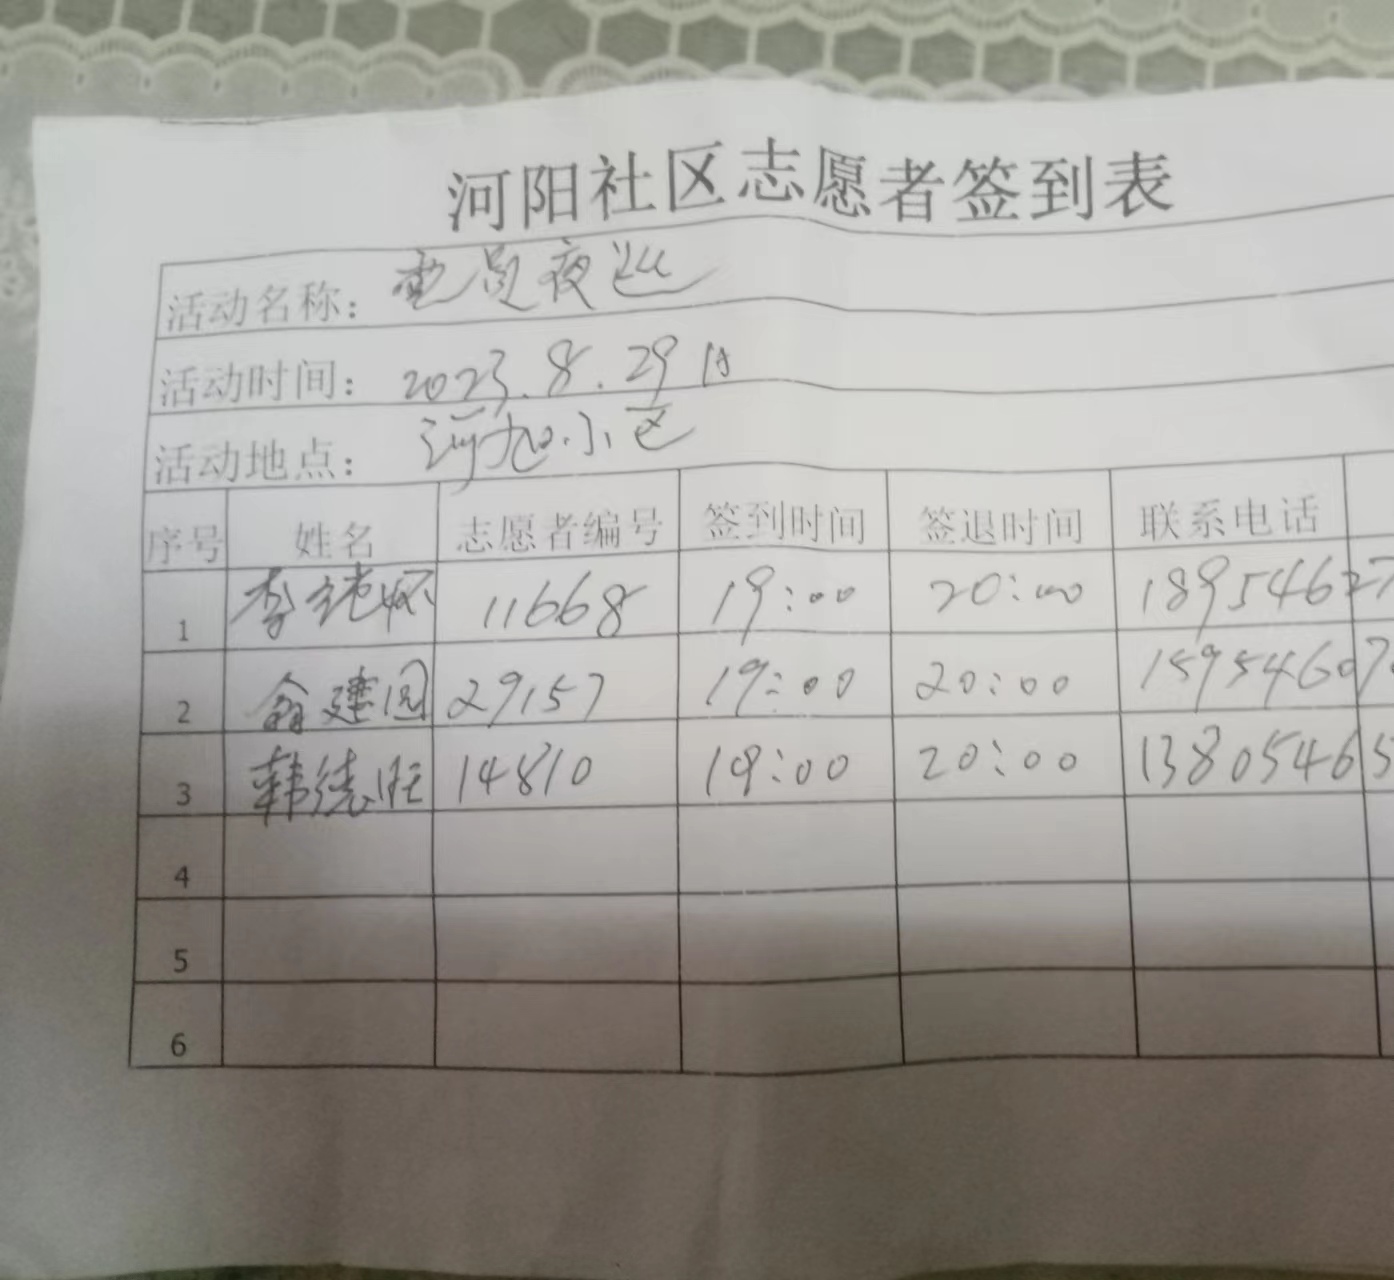 河阳社区志愿者签到表
活动名称： 夜巡
活动时间： 2023.8.29日
活动地点： 河阳小区
序号 姓名 志愿者编号 签到时间 签退时间 联系电话
1 李 11668 19:00 20:00 18954627
2 建国 29157 19:00 20:00 15954607
3 韩德旺 14810 19:00 20:00 13805465
4
5
6